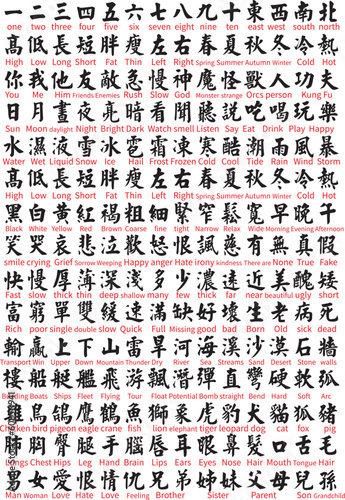 一 二 三 四 五 六 七 八 九 十 東 西 南 北
one two three four five six seven eight nine ten east west south north
高 低 長 短 胖 瘦 左 右 春 夏 秋 冬 冷 熱
High Low Long Short Fat Thin Left Right Spring Summer Autumn Winter Cold Hot
你 我 他 友 敵 急 慢 神 魔 怪 獸 人 功 夫
You Me Him Friends Enemies Rush Slow God Monster strange Orcs person Kung Fu
日 月 晝 夜 亮 暗 看 聞 聽 説 吃 喝 玩 樂
Sun Moon daylight Night Bright Dark Watch smell Listen Say Eat Drink Play Happy
水 濕 液 雪 冰 雹 霜 凍 寒 酷 潮 雨 風 暴
Water Wet Liquid Snow Ice Hail Frost Frozen Cold Cool Tide Rain Wind Storm
高 低 長 短 胖 瘦 左 右 春 夏 秋 冬 冷 熱
High Low Long Short Fat Thin Left Right Spring Summer Autumn Winter Cold Hot
黑 白 黃 紅 褐 粗 細 緊 窄 鬆 寬 早 晚 午
Black White Yellow Red Brown Coarse fine tight Narrow Relax Wide Morning Evening Afternoon
笑 哭 哀 悲 泣 歡 怒 恨 諷 慈 有 無 真 假
smile crying Grief Sorrow Weeping Happy anger Hate irony kindness There are None True Fake
快 慢 厚 薄 深 淺 多 少 濃 遠 近 美 醜 矮
Fast slow thick thin deep shallow many few thick far near beautiful ugly short
富 窮 單 雙 緩 速 滿 缺 好 壞 生 老 病 死
Rich poor single double slow Quick Full Missing good bad Born Old sick dead
輸 贏 上 下 山 雷 旱 河 海 溪 沙 漠 石 牆
Transport Win Upper Down Mountain Thunder Dry River Sea Streams Sand Desert Stone walls
接 船 艇 艦 飛 游 飄 潛 彈 直 彎 硬 軟 弧
Boarding Boats Ships Fleet Flying Tour Float Potential Bomb straight Bend Hard Soft Arc
雞 鳥 鴿 鷹 鶴 魚 獅 象 虎 豹 犬 貓 狐 豬
Chicken bird pigeon eagle crane fish lion elephant tiger leopard dog cat fox pig
肺 胸 臀 腿 手 腦 唇 耳 眼 鼻 髮 口 舌 毛
Lungs Chest Hips Leg Hand Brain Lips Ears Eyes Nose Hair Mouth Tongue Hair
男 女 愛 恨 情 仇 兄 弟 姊 妹 父 母 兒 孫
Man Woman Love Hate Love Feeling Brother Sister Parent Son Grandchild